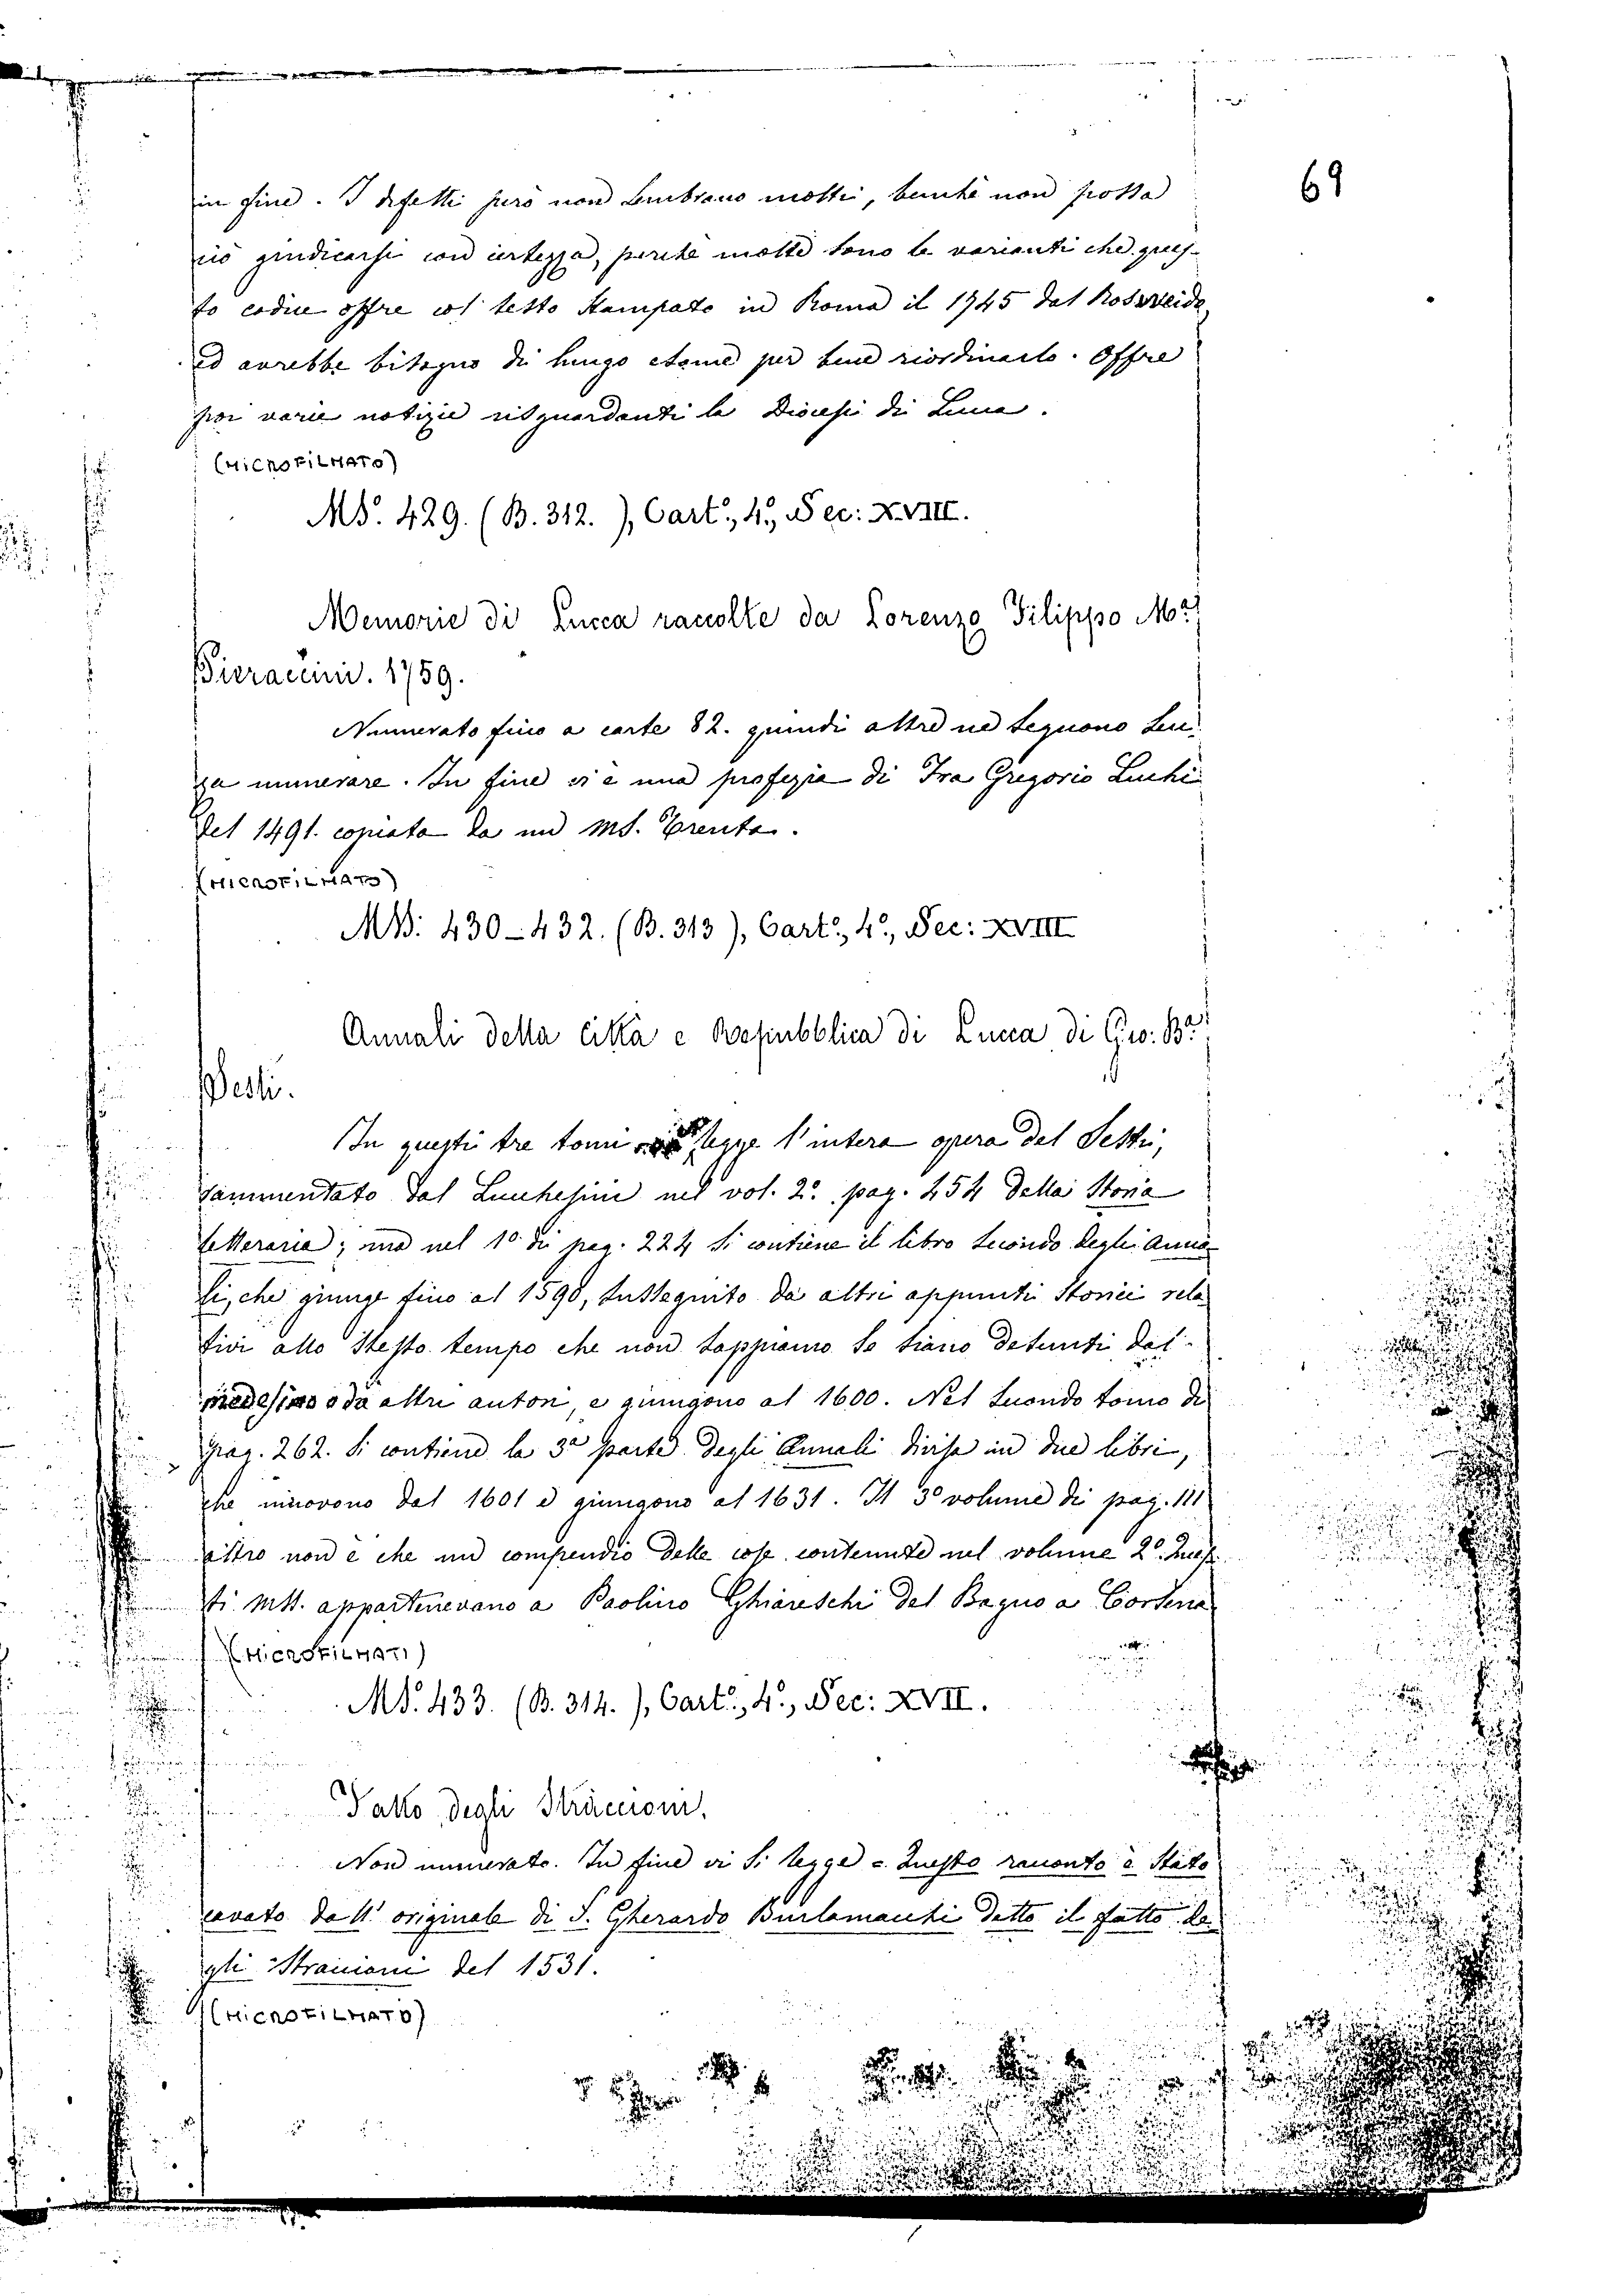 69
in fine. I difetti però non sembrano molti, benchè non possa
ciò giudicarsi con certezza, perchè molte sono le varianti che ques-
to codice offre col testo stampato in Roma il 1745 dal Rosweido
ed avrebbe bisogno di lungo esame per bene riordinarlo. Offre
poi varie notizie risguardanti la Diocesi di Luna.
(MICROFILMATO)
MS. 429. (B. 312.), Cart.º, 4.º, Sec: XVIII.
Memorie di Lucca raccolte da Lorenzo Filippo M.ª
Pieraccini. 1759.
Numerato fino a carte 82. quindi altre ne seguono sen-
za numerare. In fine vi è una profezia di Fra Gregorio Luchi
del 1491. copiata da un MS. Trenta.
(MICROFILMATO)
MSS: 430-432. (B. 313), Cart.º, 4.º, Sec: XVIII
Annali della città e Repubblica di Lucca di Gio: B.ª
Sesti.
In questi tre tomi si legge l'intera opera del Sesti,
rammentato dal Lucchesini nel vol. 2.º pag. 454 della Storia
letteraria; ma nel 1º di pag. 224 si contiene il libro secondo degli Anna-
li, che giunge fino al 1590, susseguito da altri appunti storici rela
tivi allo stesso tempo che non sappiamo se siano desunti dal
medesimo o da altri autori, e giungono al 1600. Nel secondo tomo di
pag. 262. si contiene la 3ª parte degli Annali divisa in due libri,
che muovono dal 1601 e giungono al 1631. Il 3º volume di pag. 111
altro non è che un compendio delle cose contenute nel volume 2.º Ques
ti MSS. appartenevano a Paolino Ghiareschi del Bagno a Corsena
(MICROFILMATI)
MS. 433. (B. 314.), Cart.º, 4.º, Sec: XVII.
Fatto degli Straccioni.
Non numerato. In fine vi si legge = Questo racconto è stato
cavato dall'originale di S. Gherardo Burlamacchi detto il fatto de
gli Straccioni del 1531.
(MICROFILMATO)